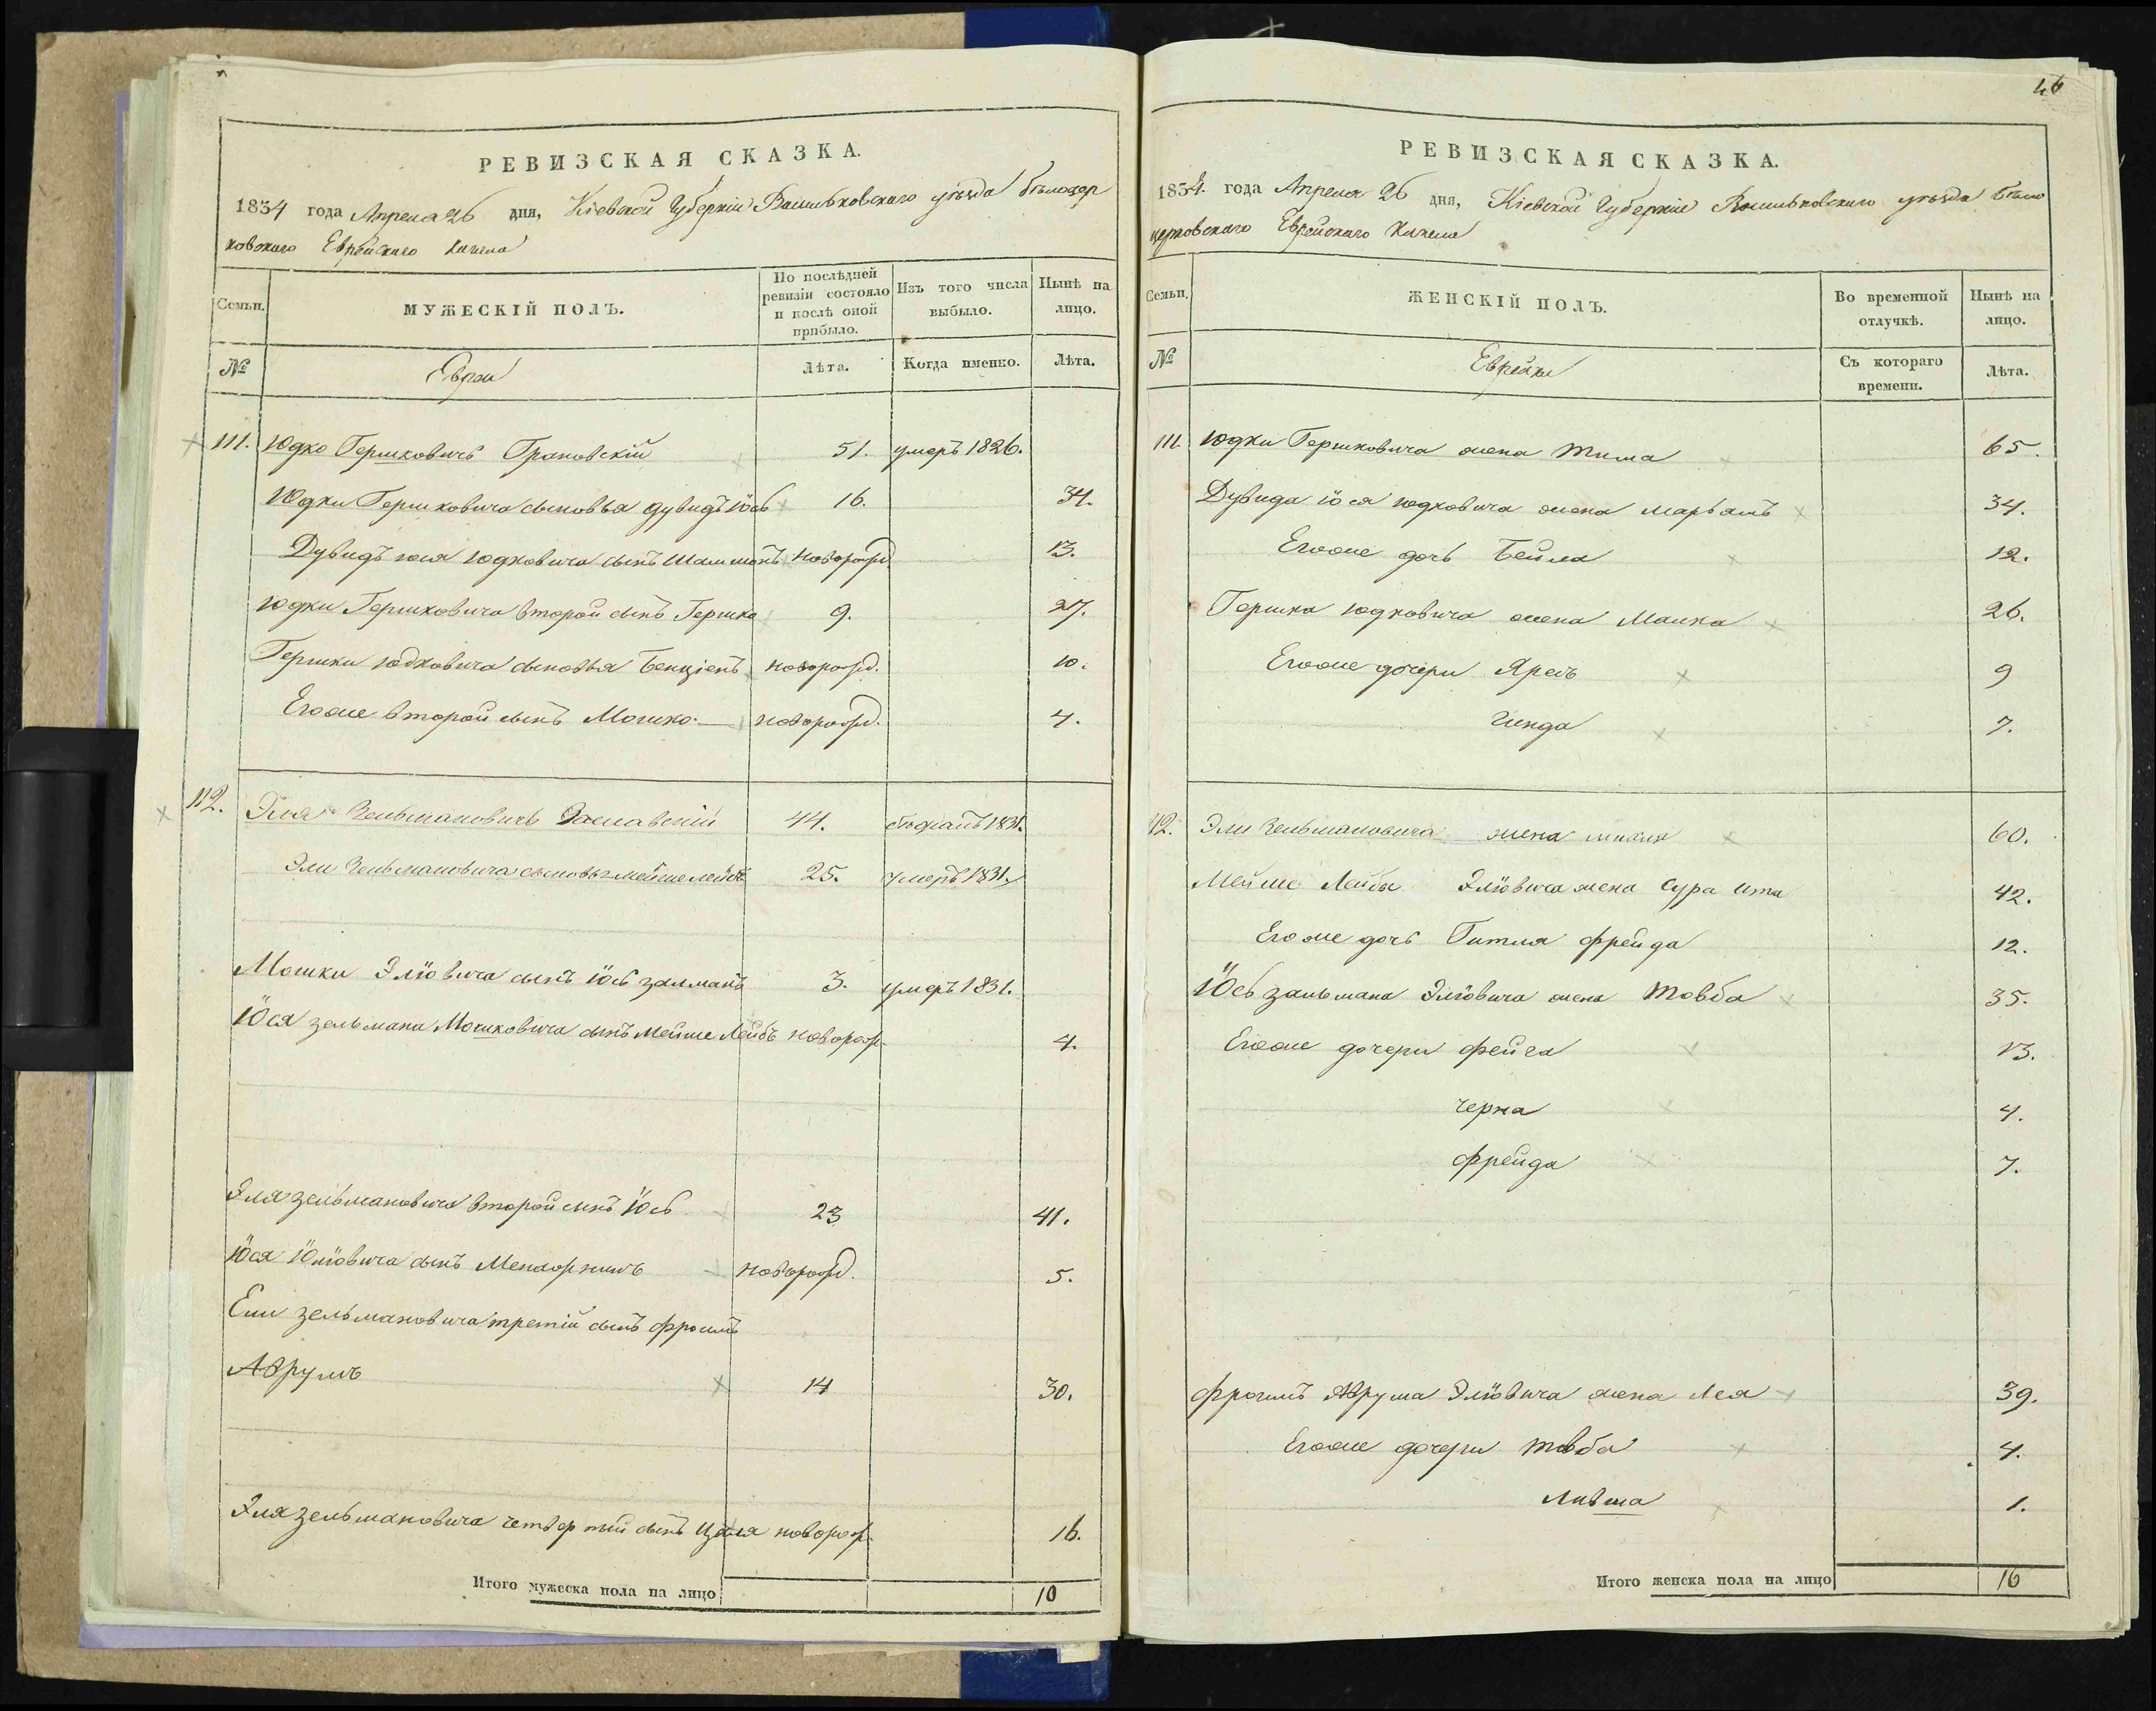 РЕВИЗСКАЯ СКАЗКА.
1834 года Апреля 26 дня, Кіевской Губерніи Васильковскаго уѣзда бѣлоцер
ковскаго Еврейскаго Кагала
Семьи.
МУЖЕСКІЙ ПОЛЪ.
По послѣдней ревизіи состояло и послѣ оной прибыло.
Изъ того числа выбыло.
Нынѣ на лицо.
№
Евреи
Лѣта.
Когда именно.
Лѣта.
111. Юдко Гершковичъ Грановскій 51. умеръ 1826.
Юдки Гершковича сыновья Дувидъ Іось 16. 34.
Дувидъ юся Юдковича сынъ Шлиома новорожд. 13.
Юдки Гершковича второй сынъ Гершко 9. 27.
Гершки Юдковича сыновья Бенціенъ новорожд. 10.
Егоже второй сынъ Мошко новорожд. 4.
112. Эля Зельмановичъ Заславскій 44. 1831.
Эли Зельмановича сыновья Мейше Лейбъ 25. умеръ 1831.
Мошки Эліовича сынъ Іось залманъ 3. умеръ 1831.
Іося зельмана Мошковича сынъ Мейше Лейбъ новорож. 4.
Эля зельмановича второй сынъ Іось 23 41.
Іося Іоліовича сынъ новорожд. 5.
Ели зельмановича третій сынъ фроимъ
Аврумъ 14 30.
Эля зельмановича четвертый сынъ новорож. 16.
Итого мужеска пола на лицо 10
46
РЕВИЗСКАЯ СКАЗКА.
1834. года Апреля 26 дня, Кіевской Губерніи Васильковскаго уѣзда бѣло
церковскаго Еврейскаго Кагала
Семьи.
ЖЕНСКІЙ ПОЛЪ.
Во временной отлучкѣ.
Нынѣ на лицо.
№
Еврейки
Съ котораго времени.
Лѣта.
111. Юдки Гершковича жена 65.
Дувида Іося Юдковича жена Марьямъ 34.
Егоже дочь Бейла 12.
Гершка Юдковича жена Малка 26.
Егоже дочери 9
Гинда 7.
112. Эли Зельмановича жена 60.
Мейше Лейбы Эліовича жена Сура ита 42.
Егоже дочь Гитля фрейда 12.
Іось зальмана Эліовича жена Товба 35.
Егоже дочери фейга 13.
Черна 4.
фрейда 7.
фроимъ Аврума Эліовича жена Лея 39.
Егоже дочери товба 4.
Ливша 1.
Итого женска пола на лицо 16